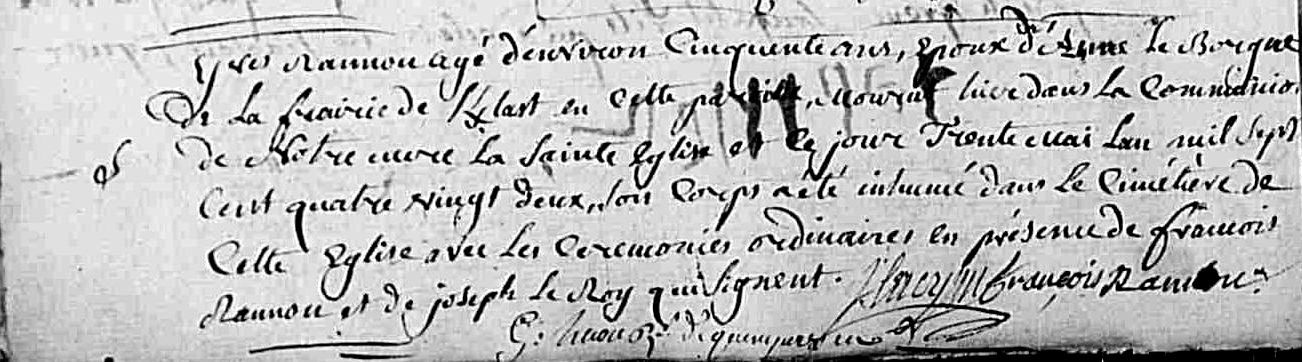 Yves Rannou agé d'environ Cinquente ans, Epoux d'Anne Le Borgne
De La frairie de en Cette paroisse, Mourut hier dans La Communion
de Notre mere La Sainte Eglise et Ce jour Trente Mai Lan mil Sept
Cent quatre vingt deux, son Corps a été inhumé dans Le Cimétière de
Cette Eglise avec Les Ceremonies ordinaires en présence de françois
Rannou et de joseph Le Roy qui signent. françois Rannou
G: